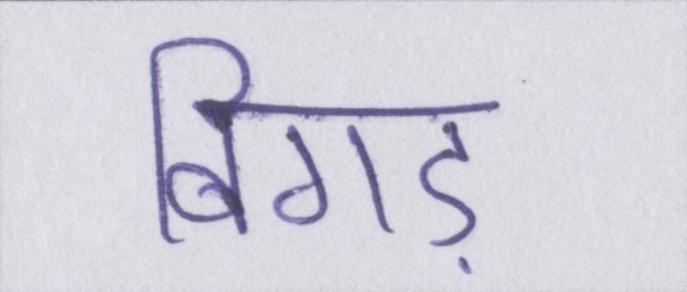 बिगड़